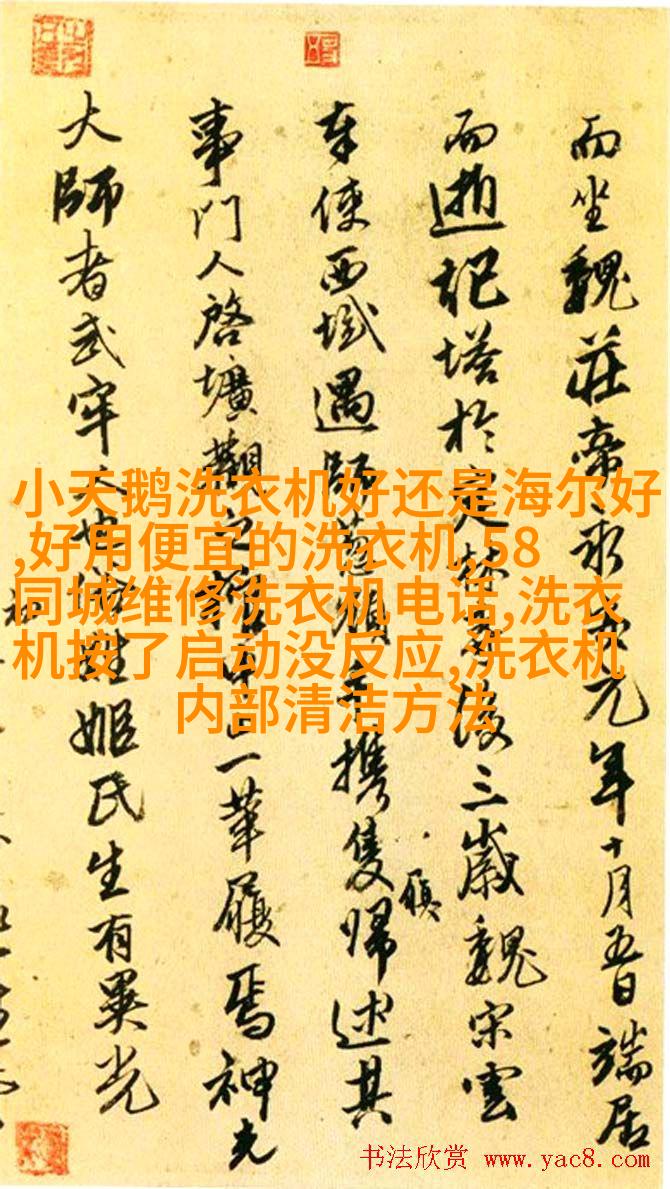 而坐魏莊帝永安元年十月五日端居
而逝記塔於定林後三歲魏宋雲
奉使西域遇師葱嶺手携隻履歸述其
事門人啓壙觀之一革履焉神光
大師者武牢人也姓姬氏生有異光
小天鹅洗衣机好还是海尔好
,好用便宜的洗衣机,58
同城维修洗衣机电话,洗衣
机按了启动没反应,洗衣机
内部清洁方法
书法欣赏 www.yac8.com